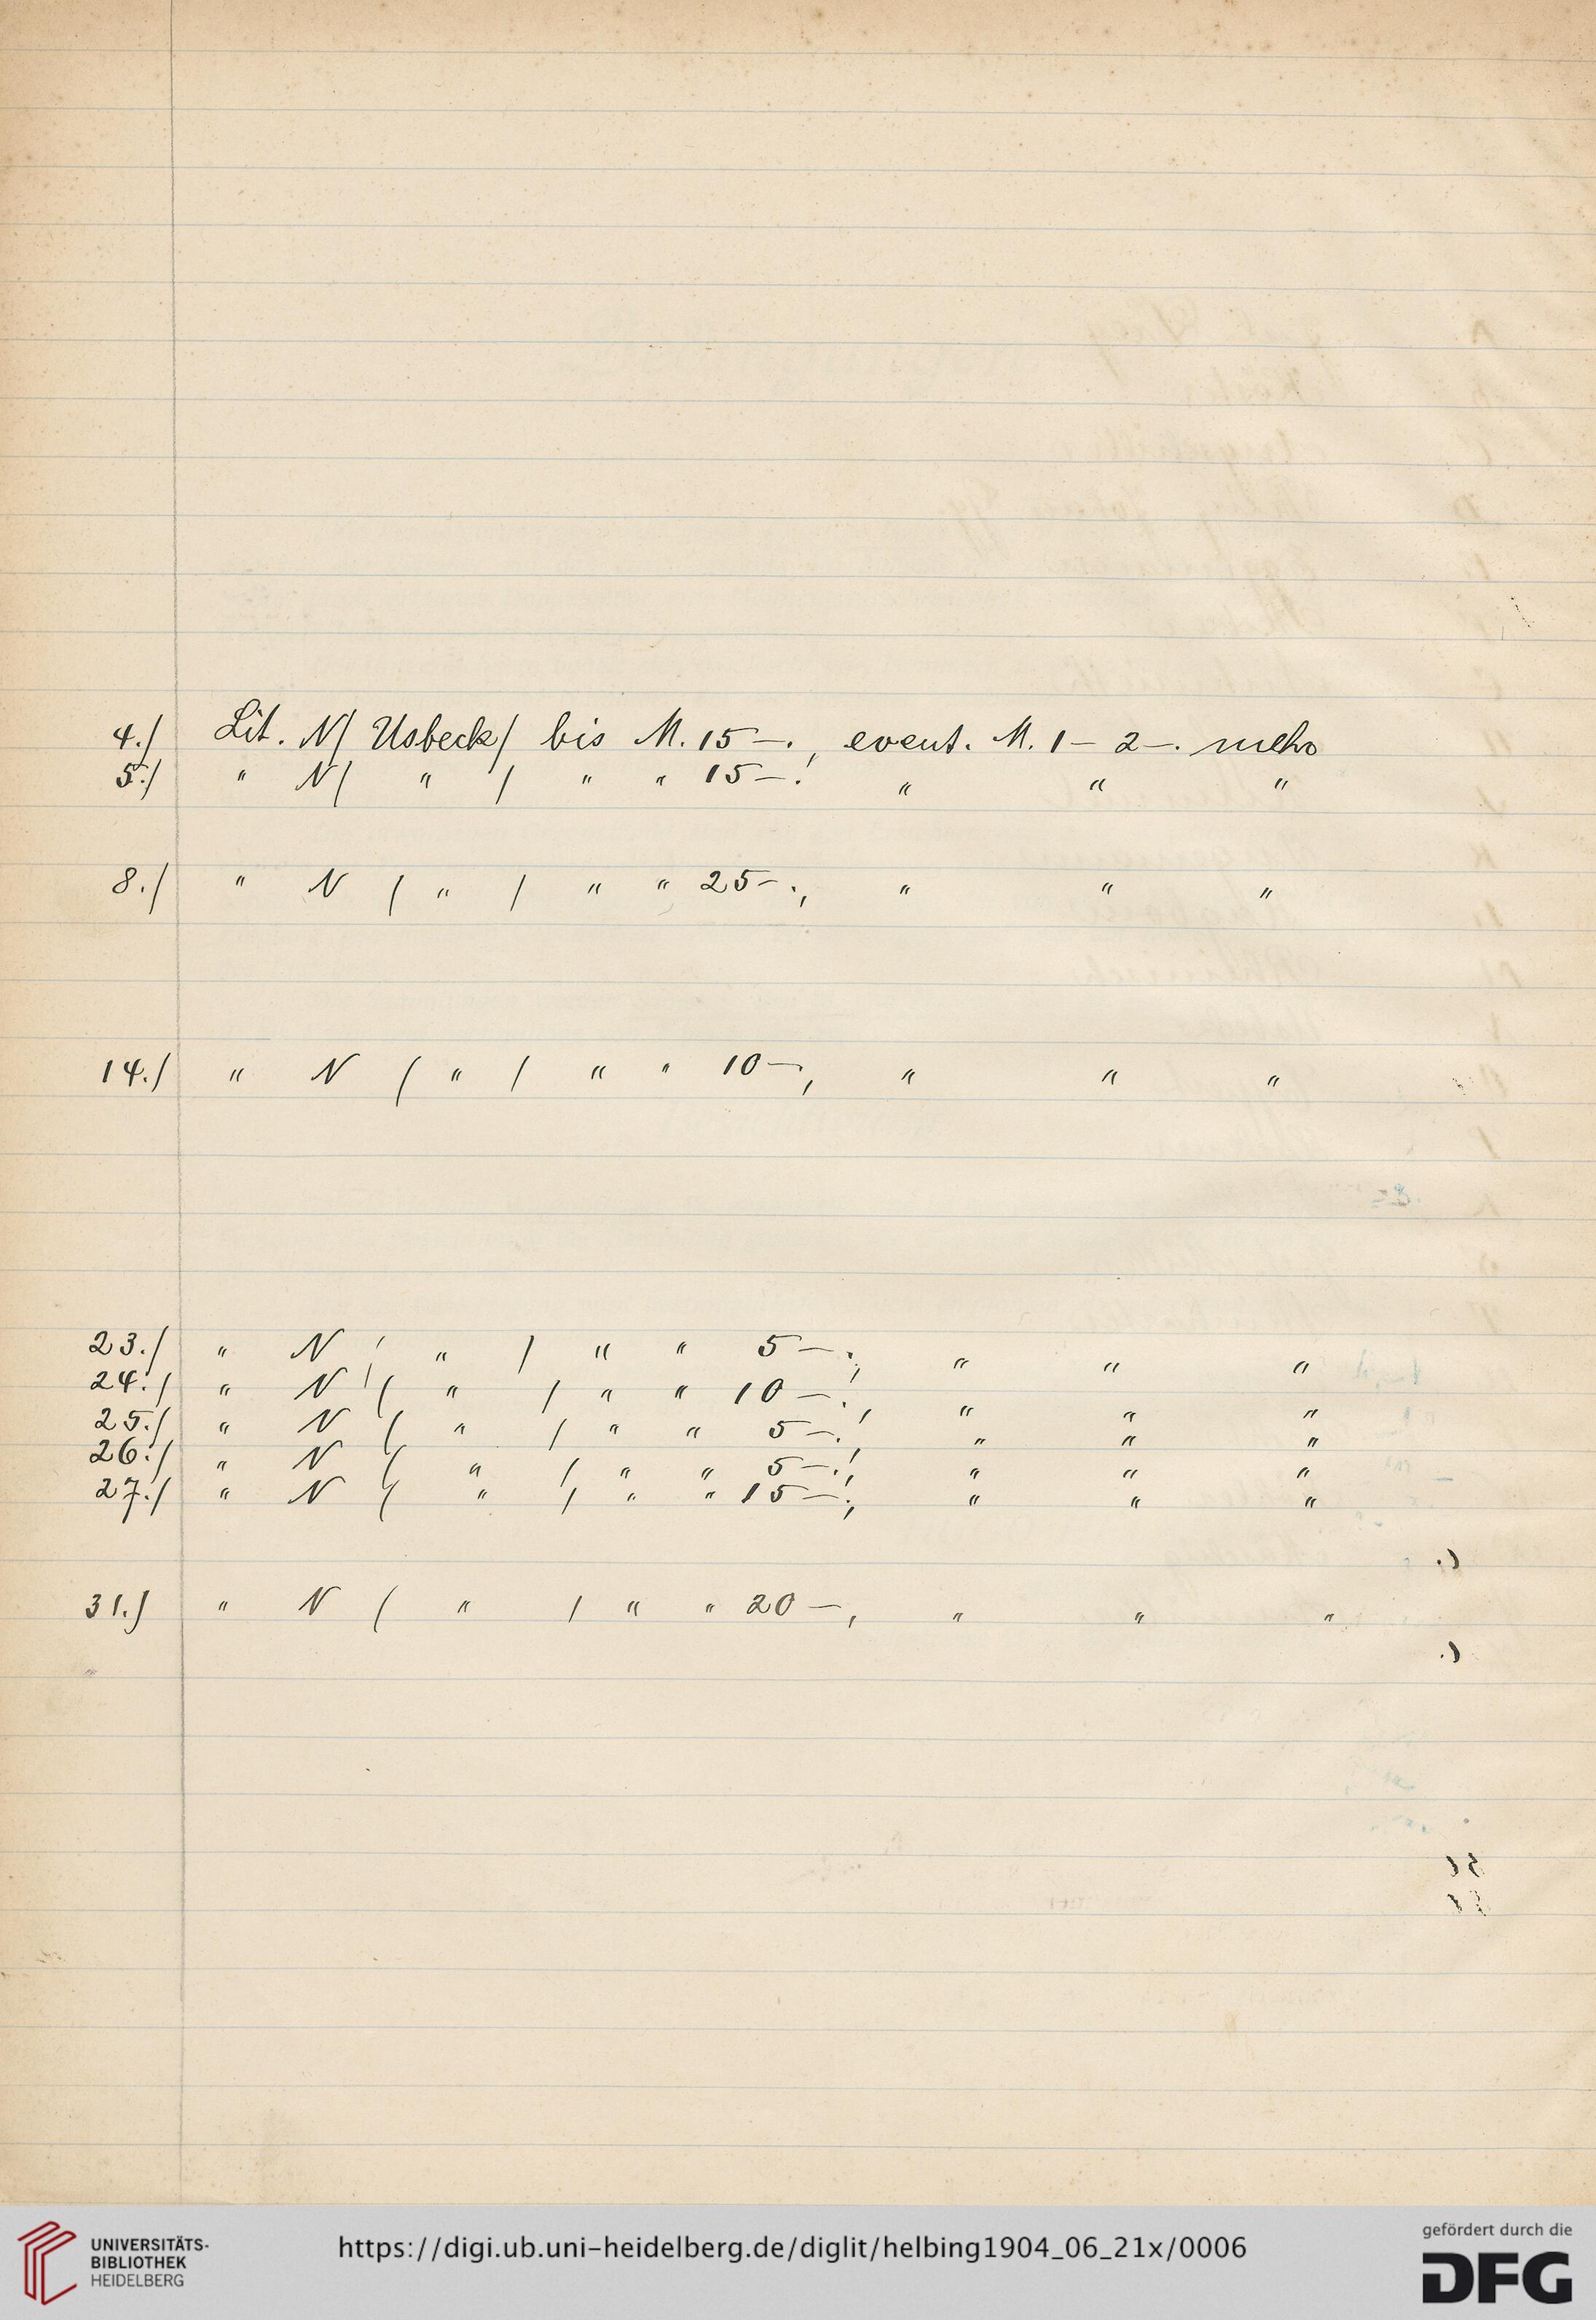 4.) Lit. N (Usbeck) bis M. 15 –. , event. M. 1 – 2 –. mehr
5.) " N ( " ) " " 15 –. , " " "
8.) " N ( " ) " " 25 –. , " " "
14.) " N ( " ) " " 10 –. , " " "
23.) " N ( " ) " " 5 –. , " " "
24.) " N ( " ) " " 10 –. , " " "
25.) " N ( " ) " " 5 –. , " " "
26.) " N ( " ) " " 5 –. , " " "
27.) " N ( " ) " " 15 –. , " " "
31.) " N ( " ) " " 20 – , " " "
UNIVERSITÄTS-
BIBLIOTHEK
HEIDELBERG
https://digi.ub.uni-heidelberg.de/diglit/helbing1904_06_21x/0006
gefördert durch die
DFG